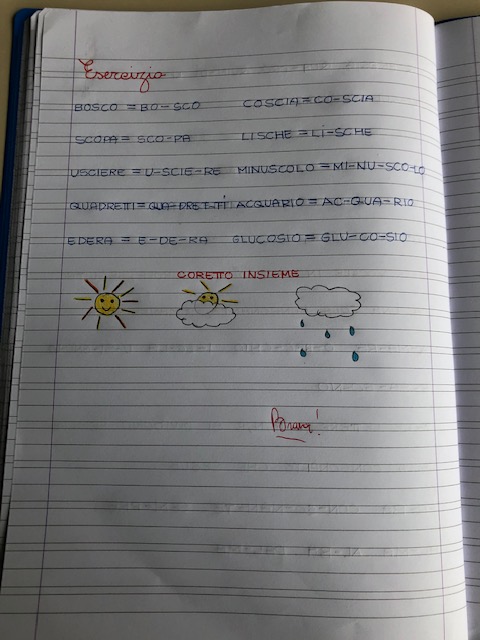 Esercizio
BOSCO = BO-SCO COSCIA = CO-SCIA
SCOPA = SCO-PA LISCHE = LI-SCHE
USCIERE = U-SCIE-RE MINUSCOLO = MI-NU-SCO-LO
QUADRETTI = QUA-DRET-TI ACQUARIO = AC-QUA-RIO
EDERA = E-DE-RA GLUCOSIO = GLU-CO-SIO
CORETTO INSIEME
Brava!